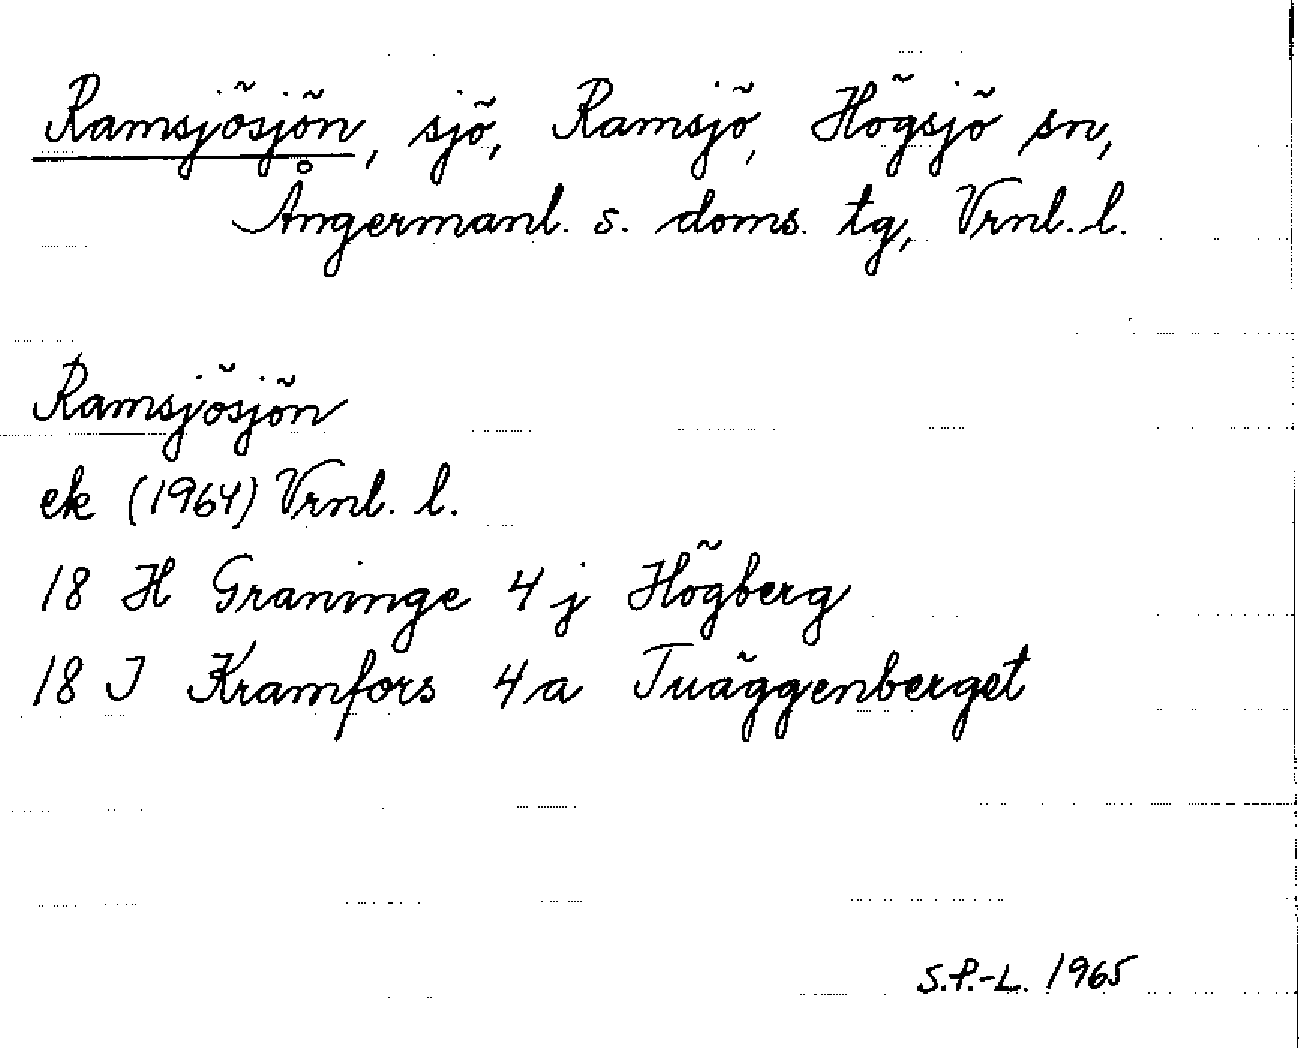 Ramsjösjön, sjö, Ramsjö, Högsjö sn,
Ångermanl. s. doms. tg, Vrnl. l.
Ramsjösjön
ek (1964) Vrnl. l.
18 H Graninge 4 j Högberg
18 I Kramfors 4 a Tuäggenberget
S.P.-L. 1965